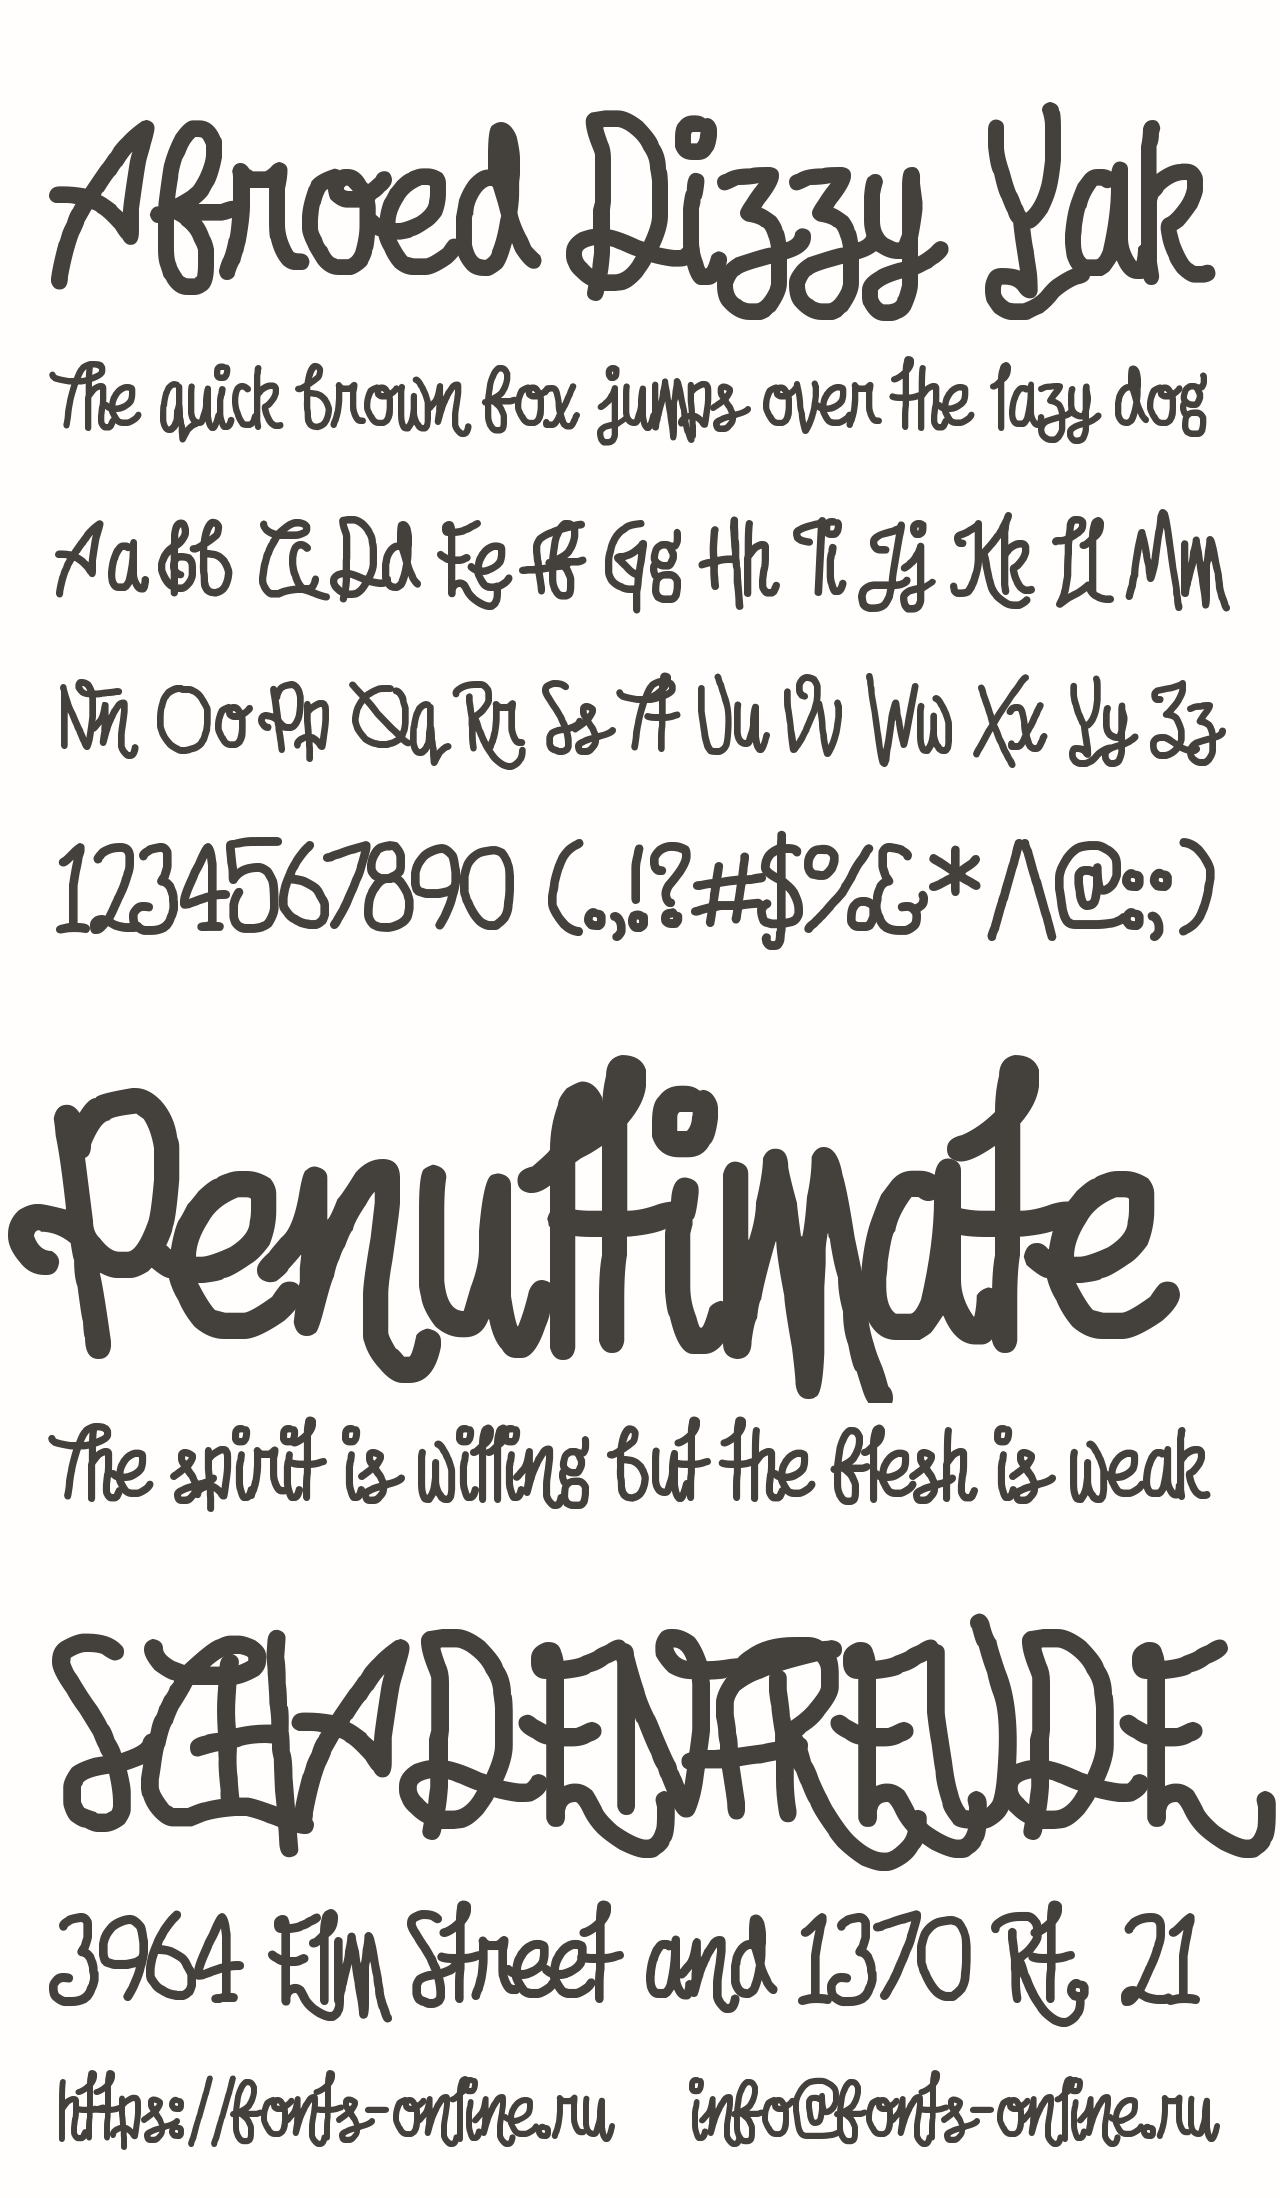 Afroed Dizzy Yak
The quick brown fox jumps over the lazy dog
Aa Bb Cc Dd Ee Ff Gg Hh Ii Jj Kk Ll Mm
Nn Oo Pp Qq Rr Ss Tt Uu Vv Ww Xx Yy Zz
1234567890 (.,!?#$%&*/\@:;)
Penultimate
The spirit is willing but the flesh is weak
SCHADENFREUDE
3964 Elm Street and 1370 Rt. 21
https://fonts-online.ru info@fonts-online.ru